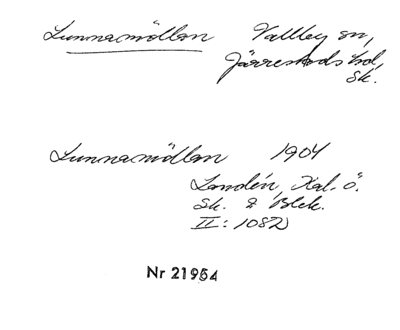 Lunnamöllan Vallby sn,
Järrestads hd,
Sk.
Lunnamöllan 1904
Landén, Kal. ö.
Sk. & Blek.
II: 1082
Nr 21954